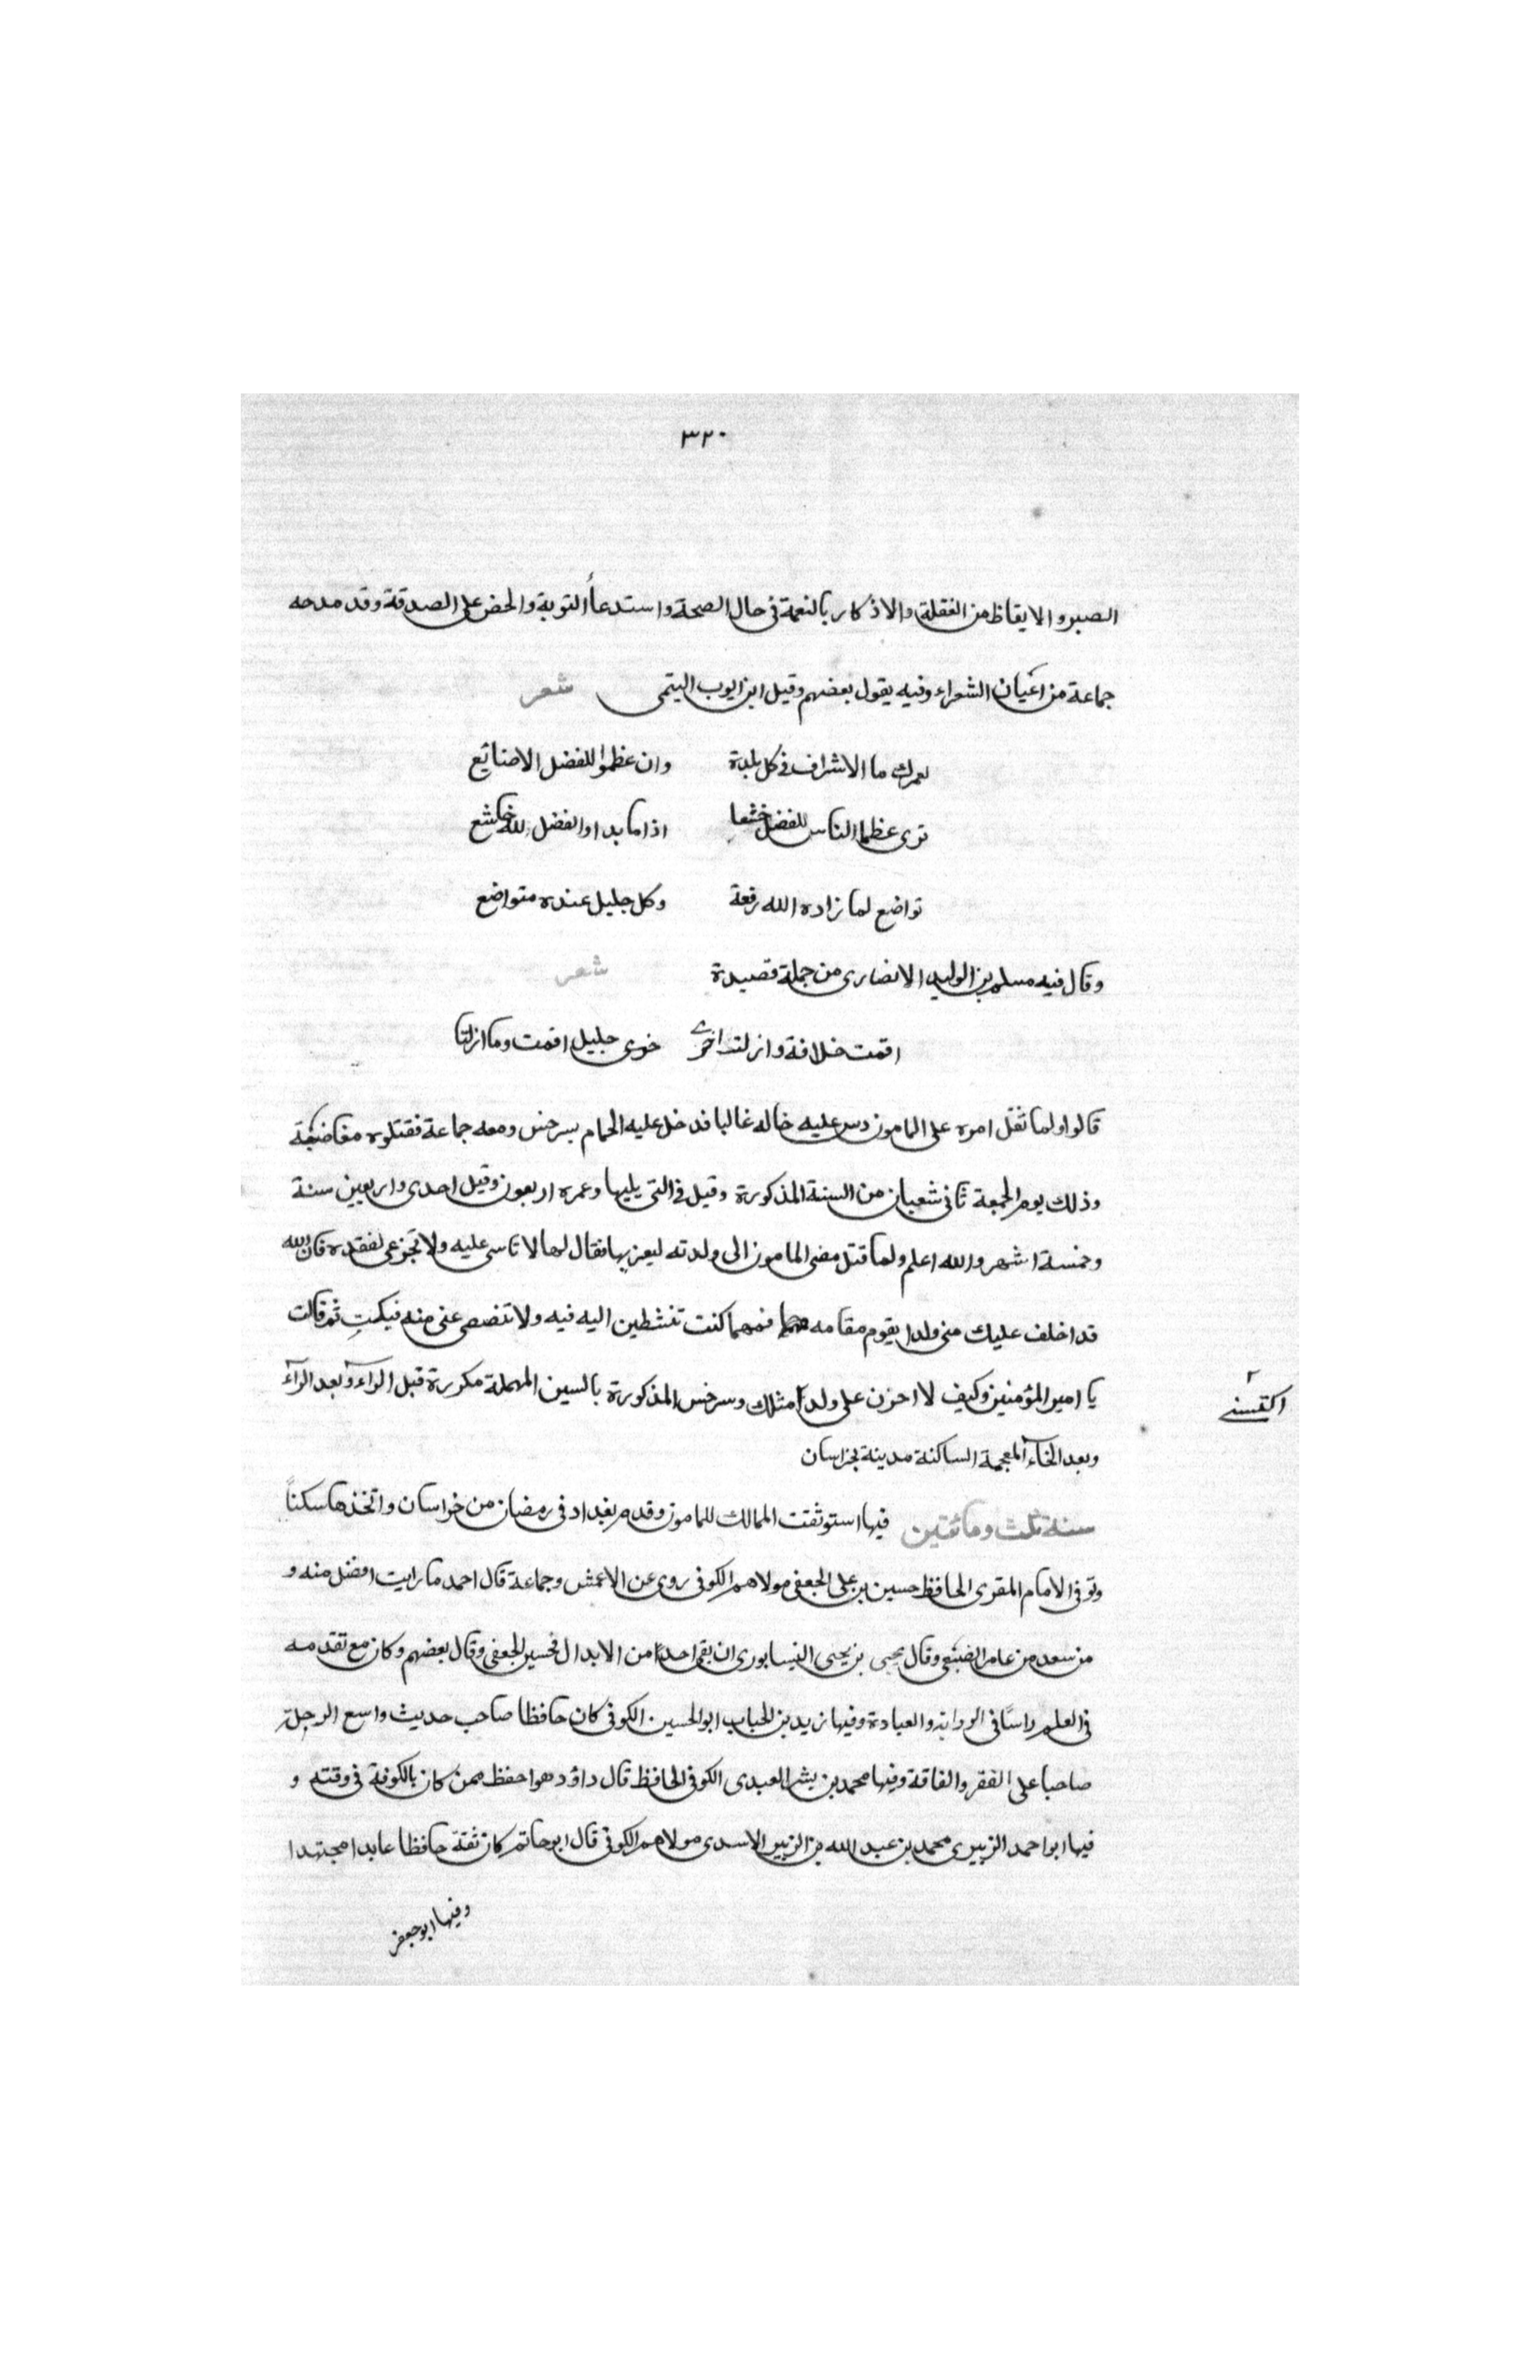 ٣٢٠
الصبر والايقاظ من الغفلة والاذكار بالنعمة فى حال الصحة واستدعأ التوبة والحض على الصدقة وقد مدحه
جماعة من اعيان الشعراء وفيه يقول بعضهم وقيل ابن ايوب اليتمى شعر
لعمرك ما الاشراف فى كل بلدة وان عظموا للفضل الاصنائع
ترى عظما الناس للفضل خشعا اذا ما بدا والفضل لله خاشع
تواضع لما زاده الله رفعة وكل جليل عنده متواضع
وقال فيه مسلم بن الوليد الانصارى من جملة قصيدة شعر
اقمت خلافة وازلت اخرى جليل اقمت وما ازلتا
قالوا ولما ثقل امره على المامون دس عليه خاله غالبا فدخل عليه الحمام بسرخس ومعه جماعة فقتلوه
وذلك يوم الجمعة ثانى شعبان من السنة المذكورة وقيل فى التى يليها وعمره اربعون وقيل احدى واربعين سنة
وخمسة اشهر والله اعلم ولما قتل مضى المامون الى ولدته ليعزيها فقال لها لا تاسى عليه ولا تجزعى لفقده فان الله
قد اخلف عليك منى ولدا يقوم مقامه فمهما كنت تنشطين اليه فيه ولا عنى منه فبكت ثم قالت
يا امير المؤمنين وكيف لا احزن على ولدا مثلك وسرخس المذكورة بالسين المهملة مكررة قبل الراء وبعد الرآء
٢
اكتسبنى
وبعد الخآء المعجمة الساكنة مدينة بخراسان
سنة ثلث ومائتين فيها استوثقت الممالك للمامون وقدم بغداد فى رمضان من خراسان واتخذها سكناً
وتوفى الامام المقرى الحافظ حسين بن على الجعفى مولاهم الكوفى روى عن الاعمش وجماعة قال احمد ما رايت افضل منه و
من سعد من عامر الضبعى وقال يحيى بن يحيى النيسابورى ان بقى احدا من الابدال فحسين الجعفى وقال بعضهم وكان مع تقدمه
فى العلم راسًا فى الورانه والعبادة وفيها زيد بن الحباب ابو الحسين الكوفى كان حافظا صاحب حديث واسع الرحلة
صاحبا على الفقر والفاقة وفيها محمد بن بشر العبدى الكوفى الحافظ قال داؤد هو احفظ ممن كان بالكوفة فى وقته و
فيها ابو احمد الزبيرى محمد بن عبد الله بن الزبير الاسدى مولاهم الكوفى قال ابو حاتم كان ثقة حافظا عابدا مجتهدا
وفيها ابو جعفر